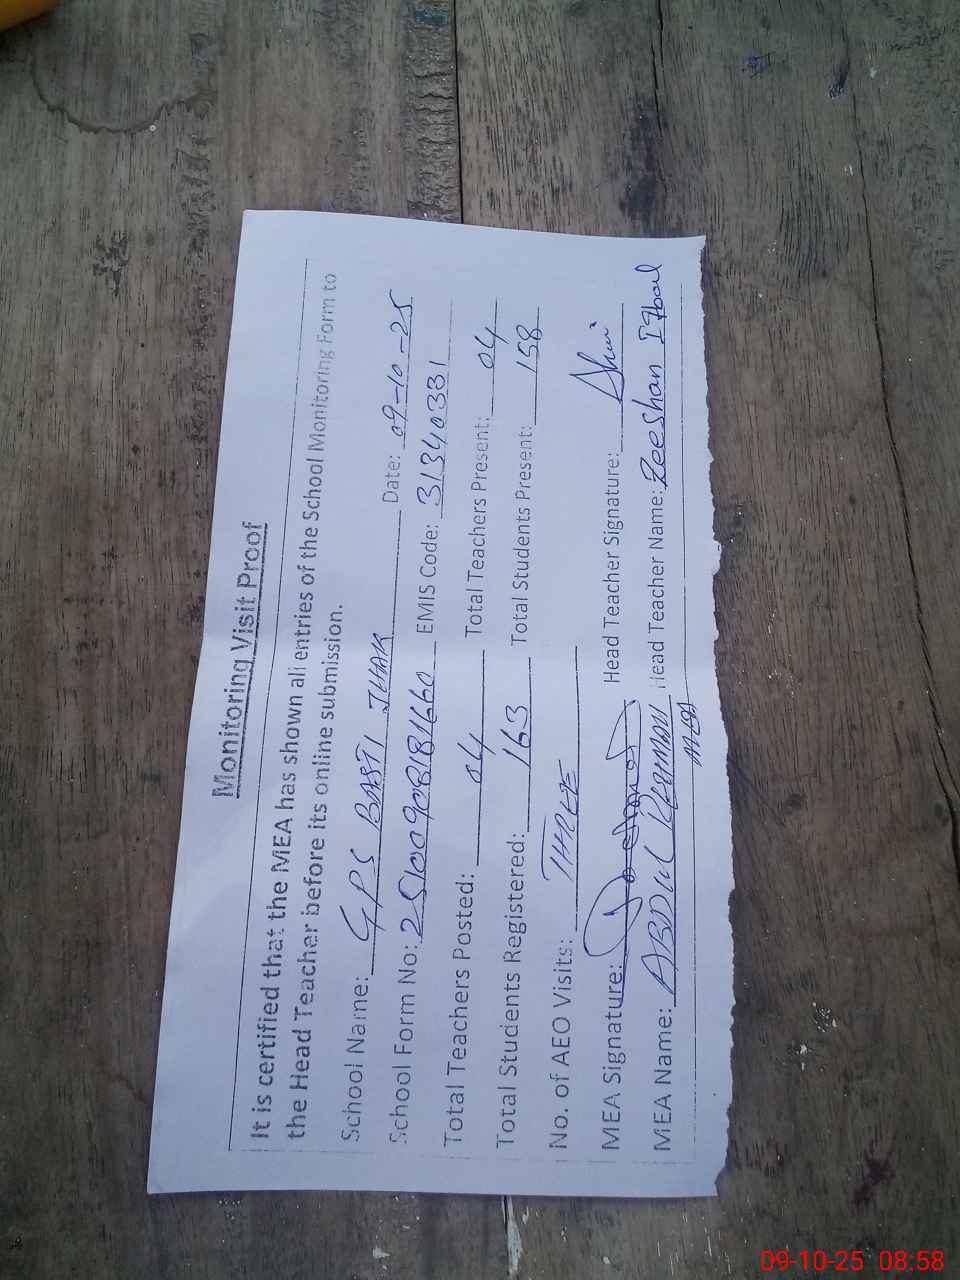 Monitoring Visit Proof
It is certified that the MEA has shown all entries of the School Monitoring Form to
the Head Teacher before its online submission.
School Name: GPS BASTI JHAK Date: 09-10-25
School Form No: 25100908181660 EMIS Code: 31340331
Total Teachers Posted: 04 Total Teachers Present: 04
Total Students Registered: 163 Total Students Present: 158
No. of AEO Visits: THREE
MEA Signature: Head Teacher Signature:
MEA Name: ABDUL REHMAN Head Teacher Name: Zeeshan I7bal
MEA
09-10-25 08:58